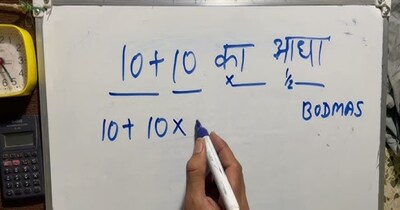 10+10 का आधा
× ½
BODMAS
10+ 10×